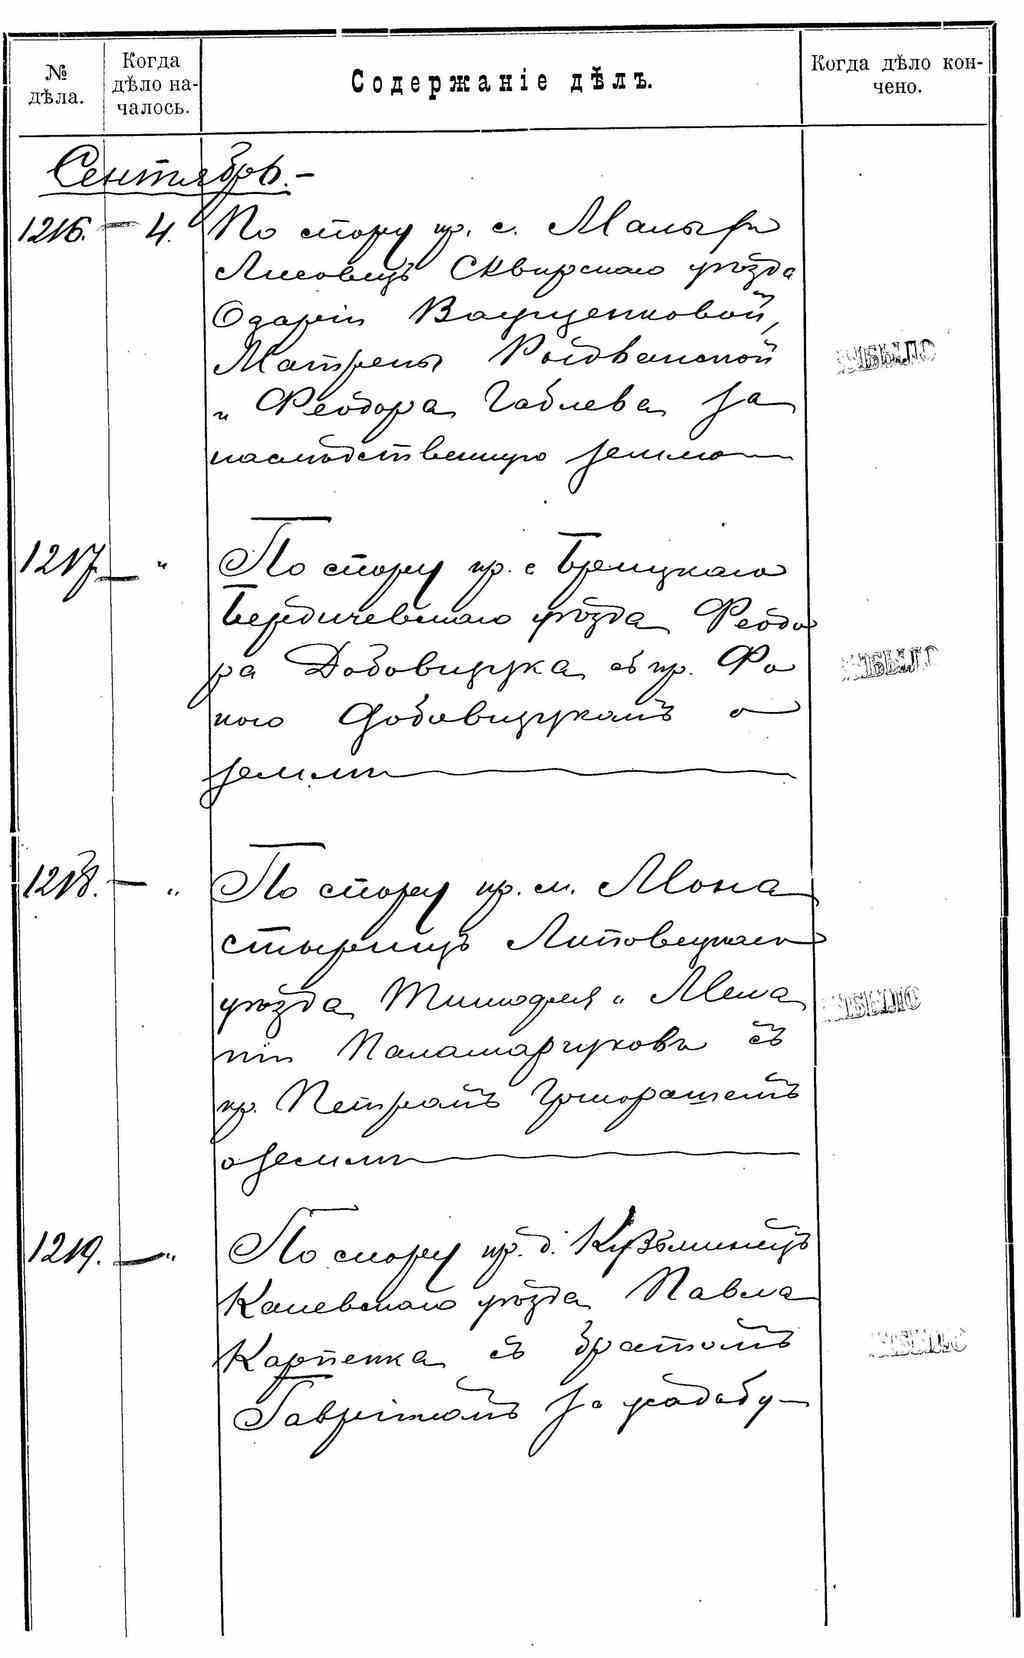 № дѣла.
Когда дѣло на-
чалось.
Содержаніе дѣлъ.
Когда дѣло кон-
чено.
Сентябрь.-
1216. - 4. По спору кр. с. Малыхъ
Лисовецъ Сквирскаго уѣзда
Одаріи Ващенковой,
Матрены
и Феодора за
наслѣдственную землю
ВЫБЫЛО
1217 - " По спору кр. с.
Бердичевскаго уѣзда Феодо
ра Добовищука съ кр. Фо
кою Добовищукомъ о
землѣ
ВЫБЫЛО
1218. - " По спору кр. м. Мона
стырищъ Липовецкаго
уѣзда Тимофея и Мела
ніи Паламарчуковъ съ
кр. Петромъ
о землѣ
ВЫБЫЛО
1219. - " По спору кр. д. Кузьминецъ
Каневскаго уѣзда Павла
Карпенка съ братомъ
Гавріиломъ за усадьбу
ВЫБЫЛО